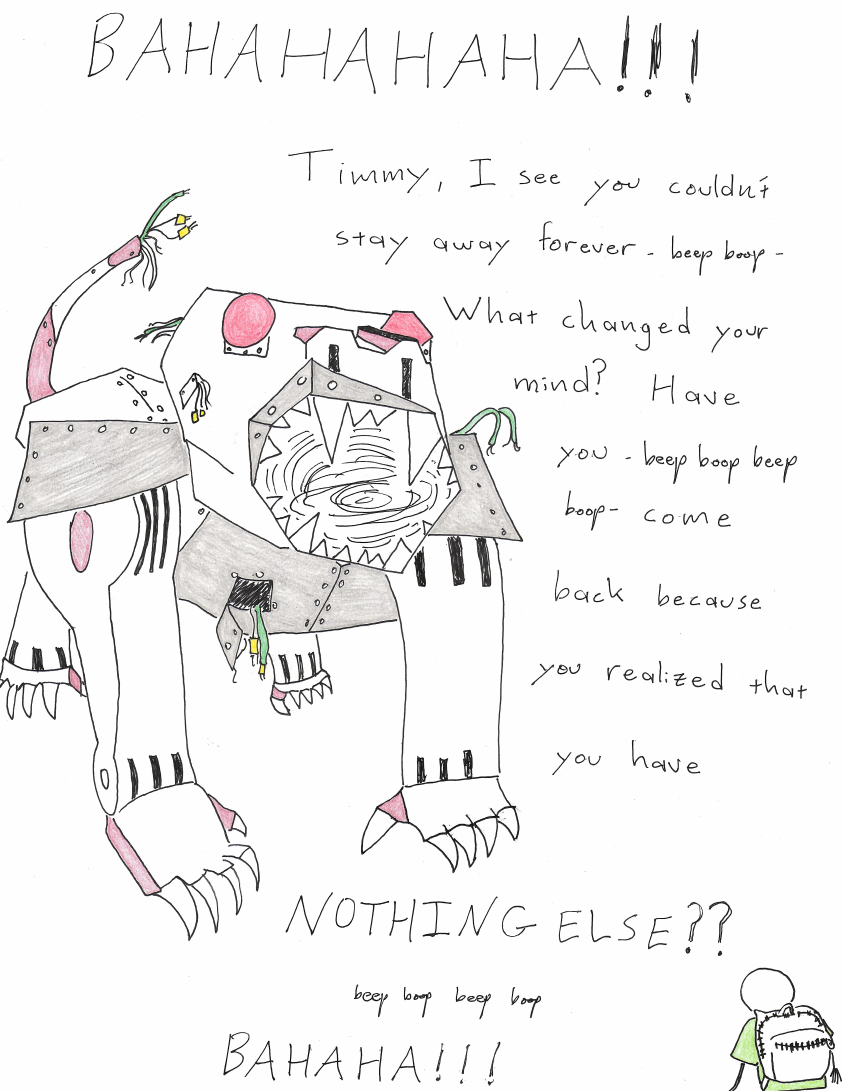 BAHAHAHAHA!!!
Timmy, I see you couldn't
stay away forever - beep boop -
What changed your
mind? Have
you - beep boop beep
boop - come
back because
you realized that
you have
NOTHING ELSE??
beep boop beep boop
BAHAHA!!!